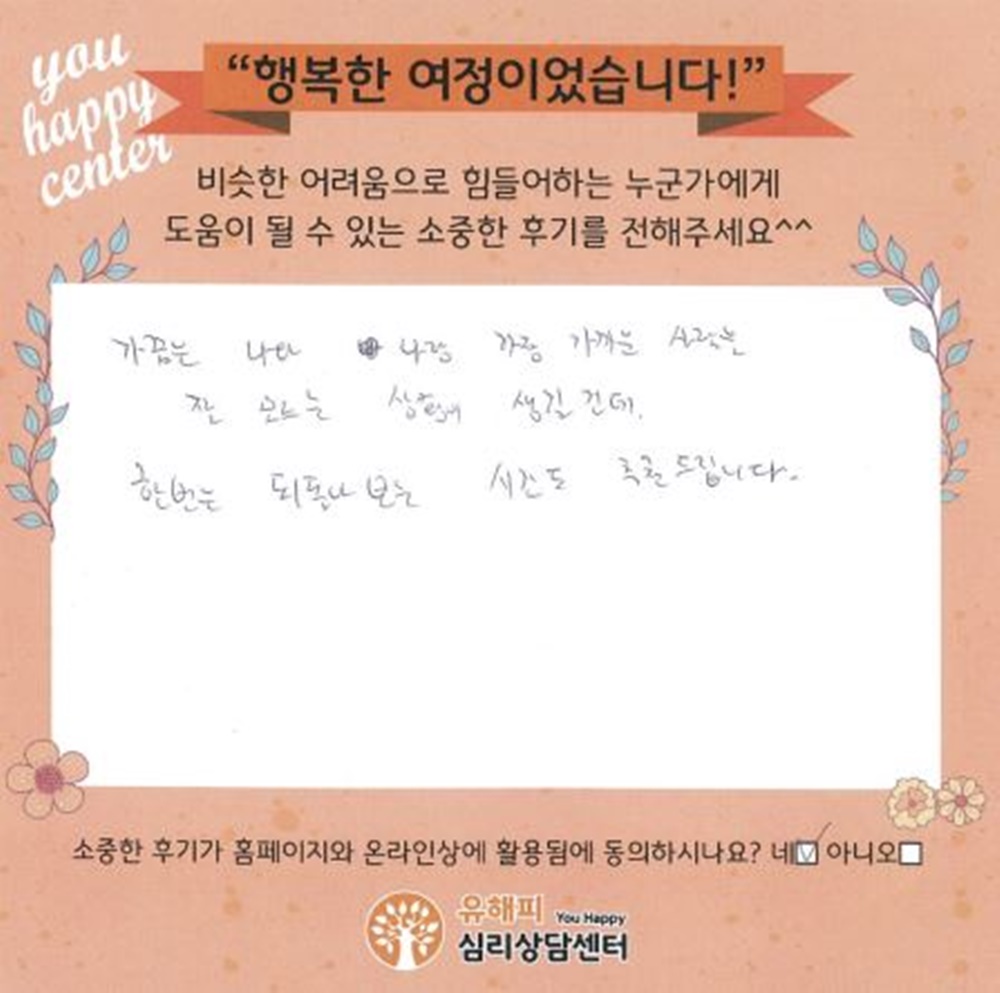 you
happy
center
“행복한 여정이었습니다!”
비슷한 어려움으로 힘들어하는 누군가에게
도움이 될 수 있는 소중한 후기를 전해주세요^^
가끔은 나와 나랑 가장 가까운 사람은
잘 모르는 상황이 생길 건데.
한번은 되돌아 보는 시간도 추천드립니다.
소중한 후기가 홈페이지와 온라인상에 활용됨에 동의하시나요? 네☑ 아니오☐
유해피 You Happy
심리상담센터